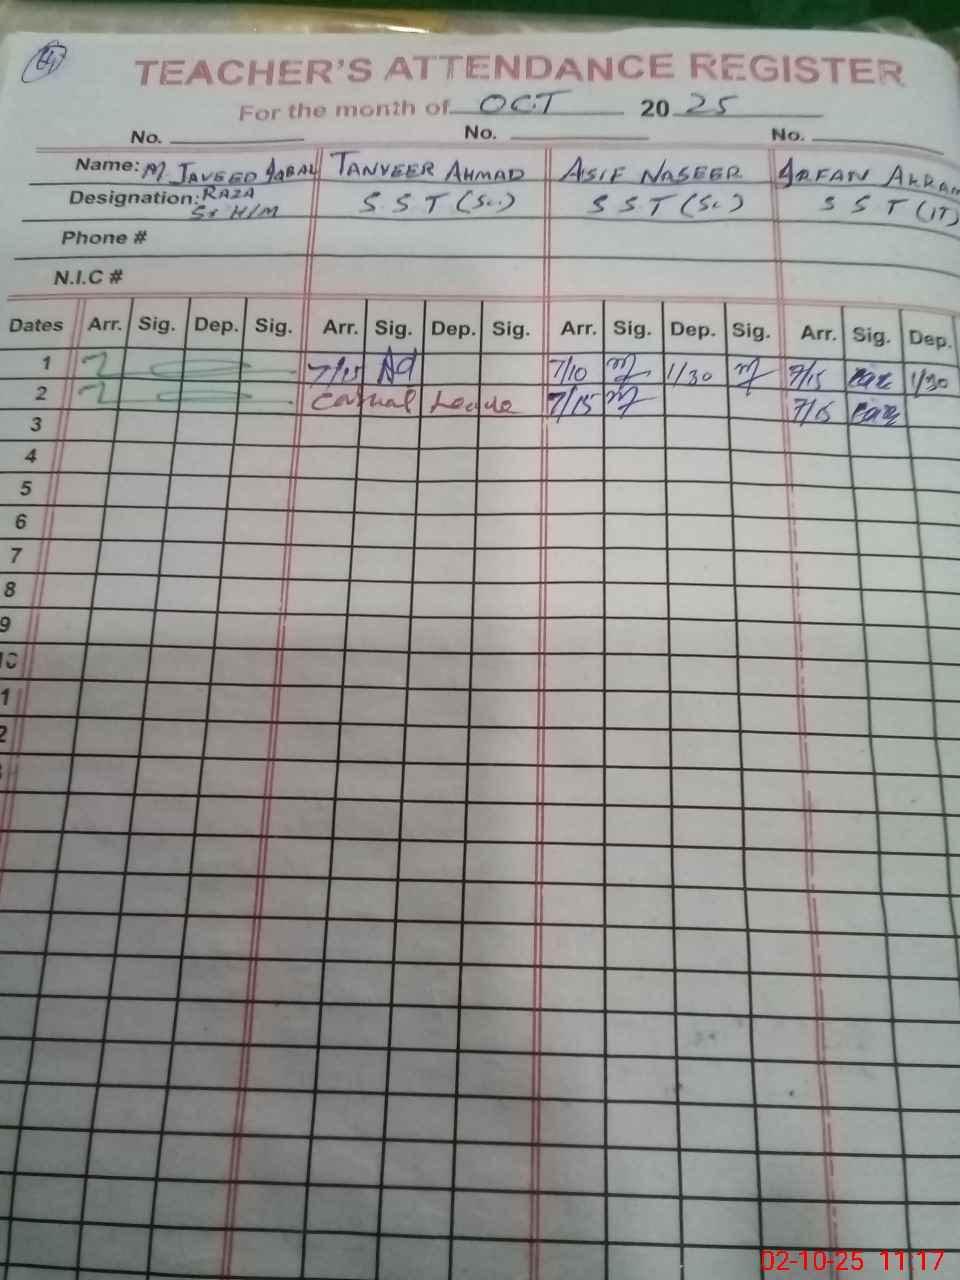 TEACHER'S ATTENDANCE REGISTER
For the month of OCT 20 25
No. No. No.
Name: M JAVEED IQBAL TANVEER AHMAD ASIF NASEER IRFAN AKRAM
Designation: RAZA S.S.T (Sc.) S S T (Sc) S S T (IT)
Sr H/M
Phone #
N.I.C #
Dates Arr. Sig. Dep. Sig. Arr. Sig. Dep. Sig. Arr. Sig. Dep. Sig. Arr. Sig. Dep.
1 7/15 7/10 1/30 7/15 1/30
2 Casual Leave 7/15 7/15
3
4
5
6
7
8
9
10
1
2
02-10-25 11:17